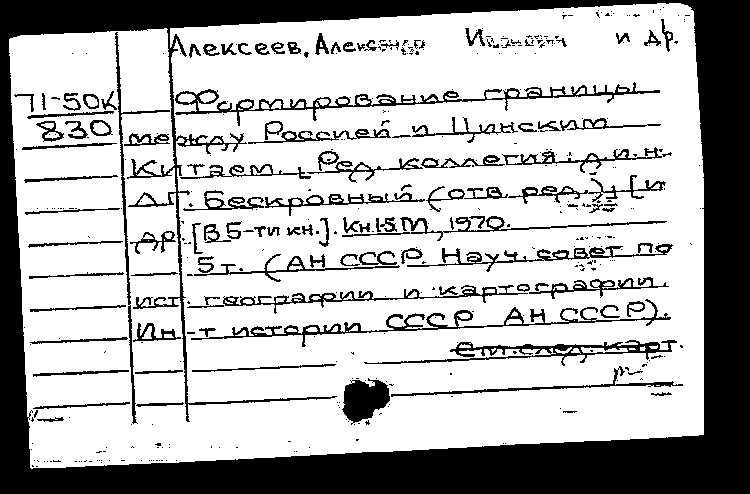 Алексеев, Александр Иванович и др.
71-50К Формирование границы
830 между Россией и Цинским
Китаем. [Ред. коллегия: д.и.н.
Л.Г. Бескровный (отв. ред.)], [и
др. [В 5-ти кн.]. Кн.1-5. М., 1970.
5т. (АН СССР. Науч. совет по
ист. географии и картографии.
Ин-т истории СССР АН СССР).
См. след. карт.